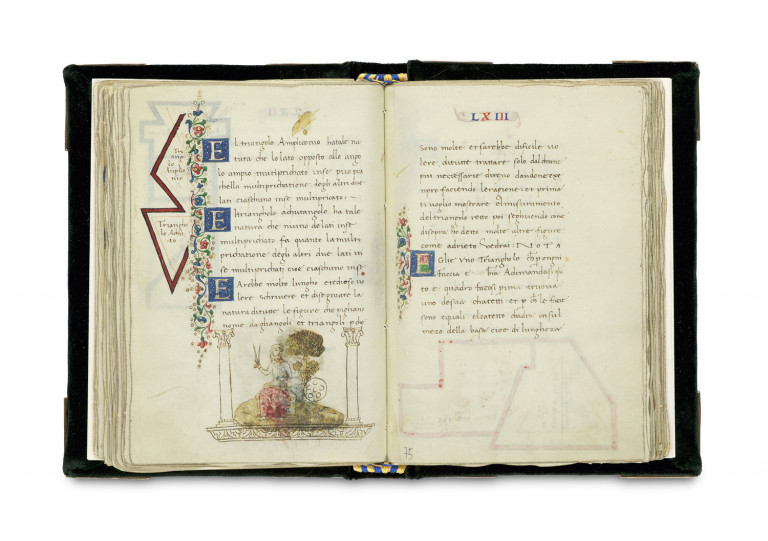 Triangolo Ampliotivo
Triangholo Acutto
El triangolo Ampliotivo ha tale na
tura che lo lato opposto alle ango
lo ampio multiprichato inse piu pia
chella multiprichatione degli altri due
lati ciaschuno inse multiprichato
El triangholo achutangolo ha tale
natura che niuno de lati inse
multiprichato fa quanto la multi
prichatione degli altri due lati in
se multiprichati cioe ciaschuno inse
E Sarebbe molto lungho eredioso vo
lere schrivere et disegniare la
natura ditutte le figure che pigliano
nome da ghangoli et triangoli p che
LXIII
sono molte et sarebbe dificile vo
lere ditutte trattare solo dalchune
piu necessarie diremo dandone exe
mpro faciendo le ragione et prima
ti voglio mostrare el misurimento
del triangolo retto poi seguendo come
disopra ho detto molte altre figure
come adrieto vedrai: NOTA
Eglie uno Triangholo
faccia e Adimandasi
to e quadro facosi prima truova
uno desua chatetti et p
sono equali elcatetto chadra insul
mezo della base cioe di lungheza
75